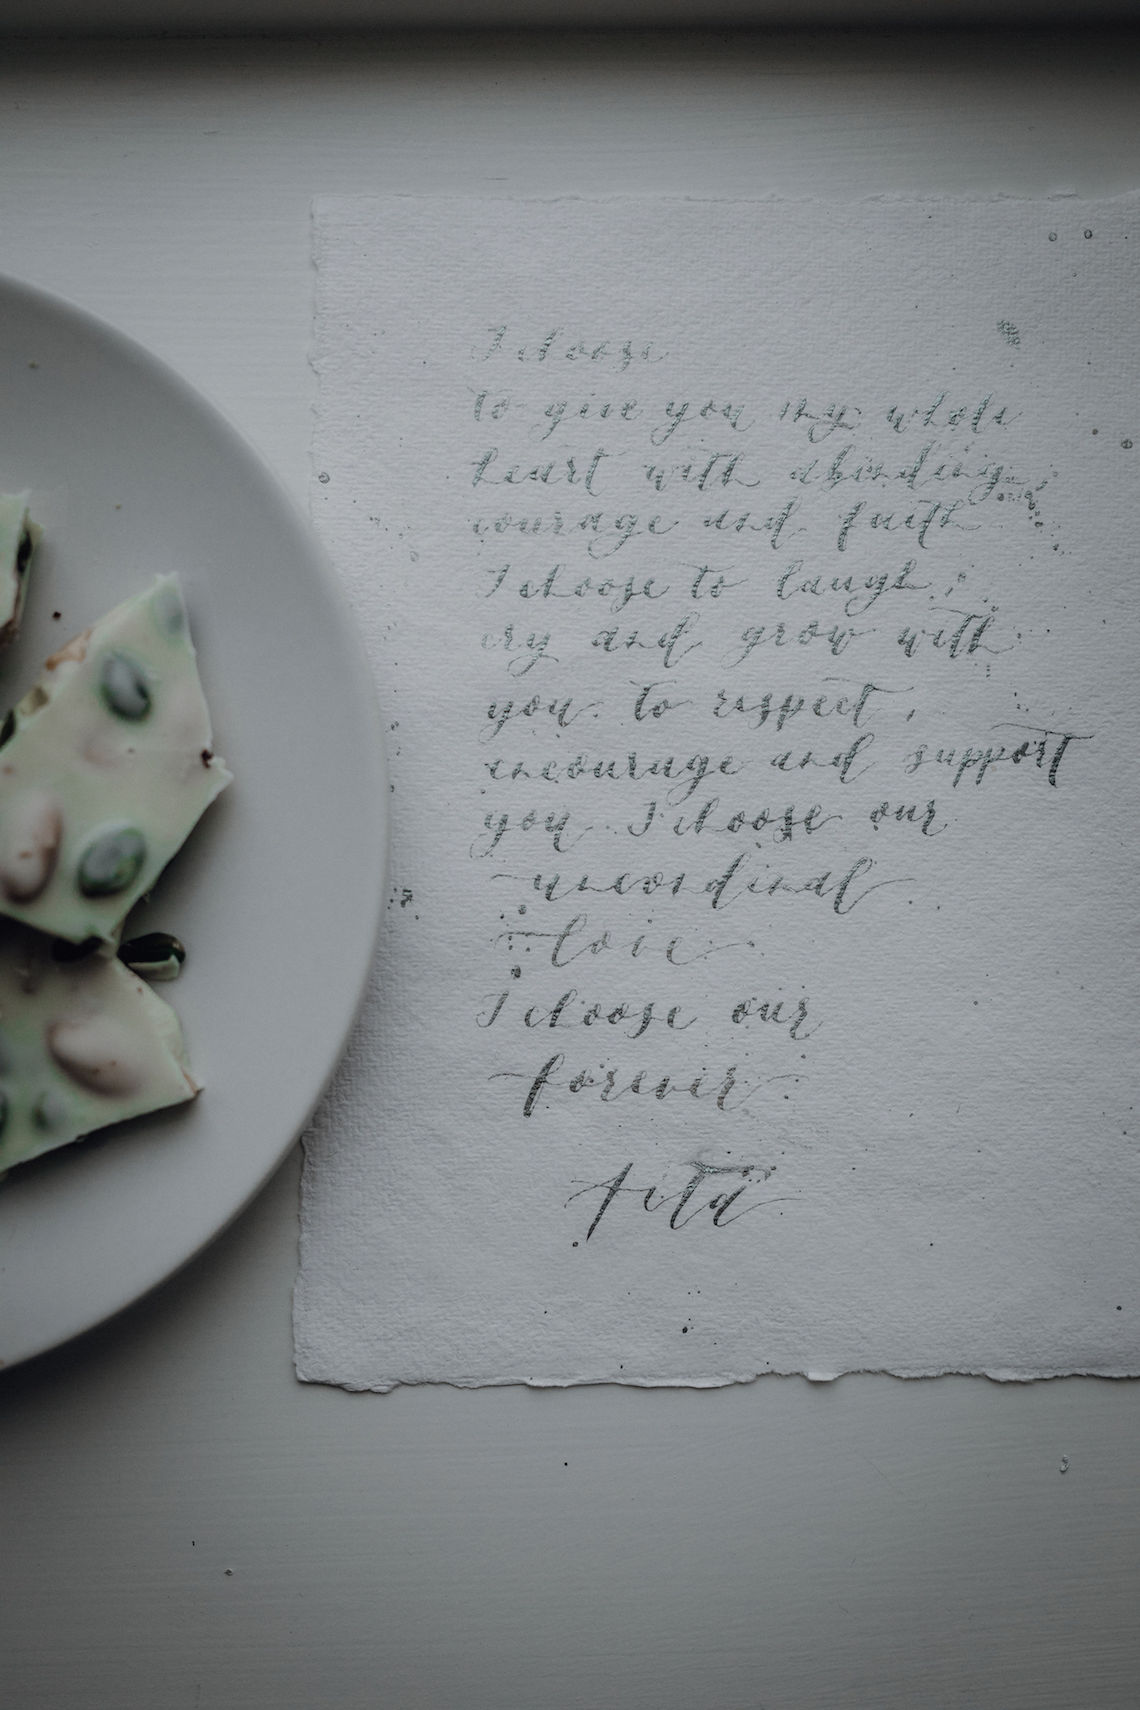 I choose
to give you my whole
heart with abinding,
courage and faith
I choose to laugh,
cry and grow with
you. to respect,
encourage and support
you. I choose our
uncondinal
love.
I choose our
forever.